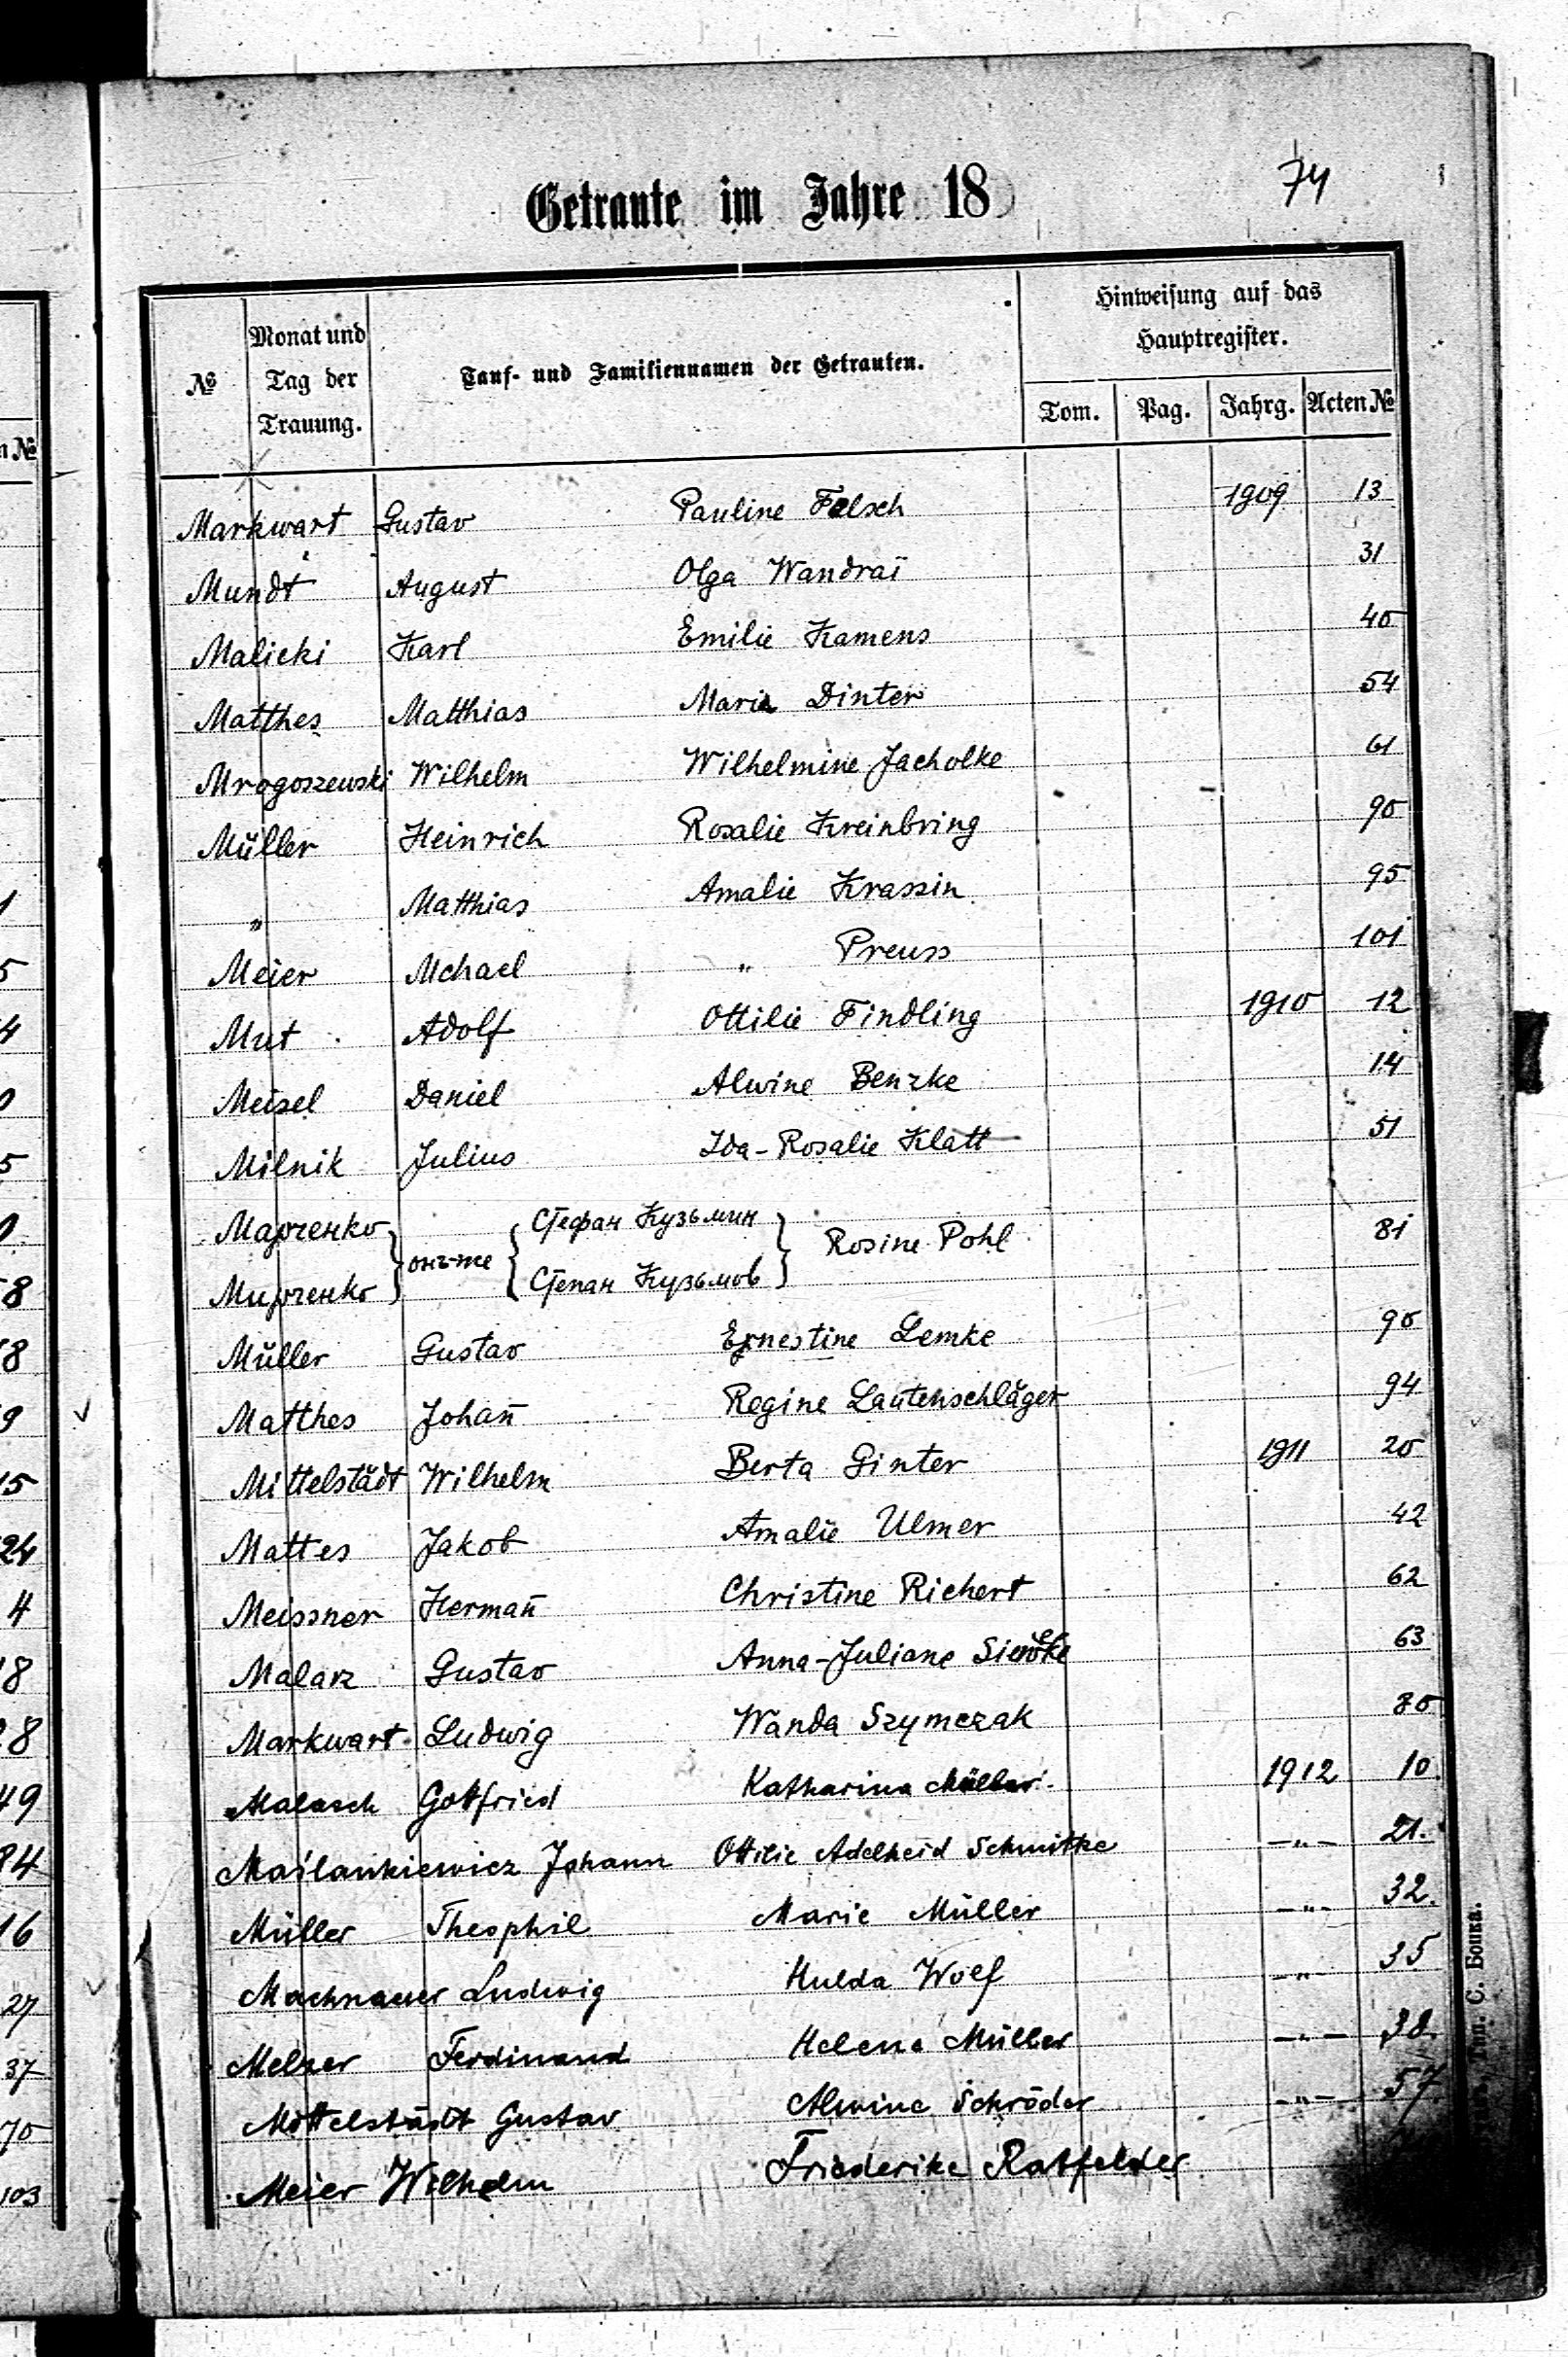 74
Getraute im Jahre 18
№ Monat und Tag der Trauung. Tauf- und Familiennamen der Getrauten. Hinweisung auf das Hauptregister.
Tom. Pag. Jahrg. Acten №
Markwart Gustav Pauline Felsch 1909 13
Mundt August Olga Wandrai 31
Malicki Karl Emilie Kamens 40
Matthes Matthias Maria Dinter 54
Mrogoszewski Wilhelm Wilhelmine Jacholke 61
Müller Heinrich Rosalie Kreinbring 90
" Matthias Amalie Krassin 95
Meier Mchael " Preuss 101
Mut Adolf Ottilie Findling 1910 12
Meisel Daniel Alwine Benzke 14
Milnik Julius Ida-Rosalie Klatt 51
Марченко } онъ-же { Стефан Кузьмин } Rosine Pohl 81
Мирченко } { Степан Кузьмов }
Müller Gustav Ernestine Lemke 90
Matthes Johañ Regine Lautenschläger 94
Mittelstädt Wilhelm Berta Ginter 1911 20
Mattes Jakob Amalie Ulmer 42
Meissner Hermañ Christine Richert 62
Malarz Gustav Anna-Juliane 63
Markwart Ludwig Wanda Szymczak 80
Malasch Gottfried Katharina Müller 1912 10.
Maślankiewicz Johann Ottilie Adelheid Schmitke —"— 21.
Müller Theophil Marie Müller —"— 32.
Machnauer Ludwig Hulda Wolf —"— 35
Melzer Ferdinand Helene Müller —"— 38.
Mittelstädt Gustav Alwine Schröder —"— 57
Meier Wilhelm Friederike Ratfelder
Тип. С. Бонка.